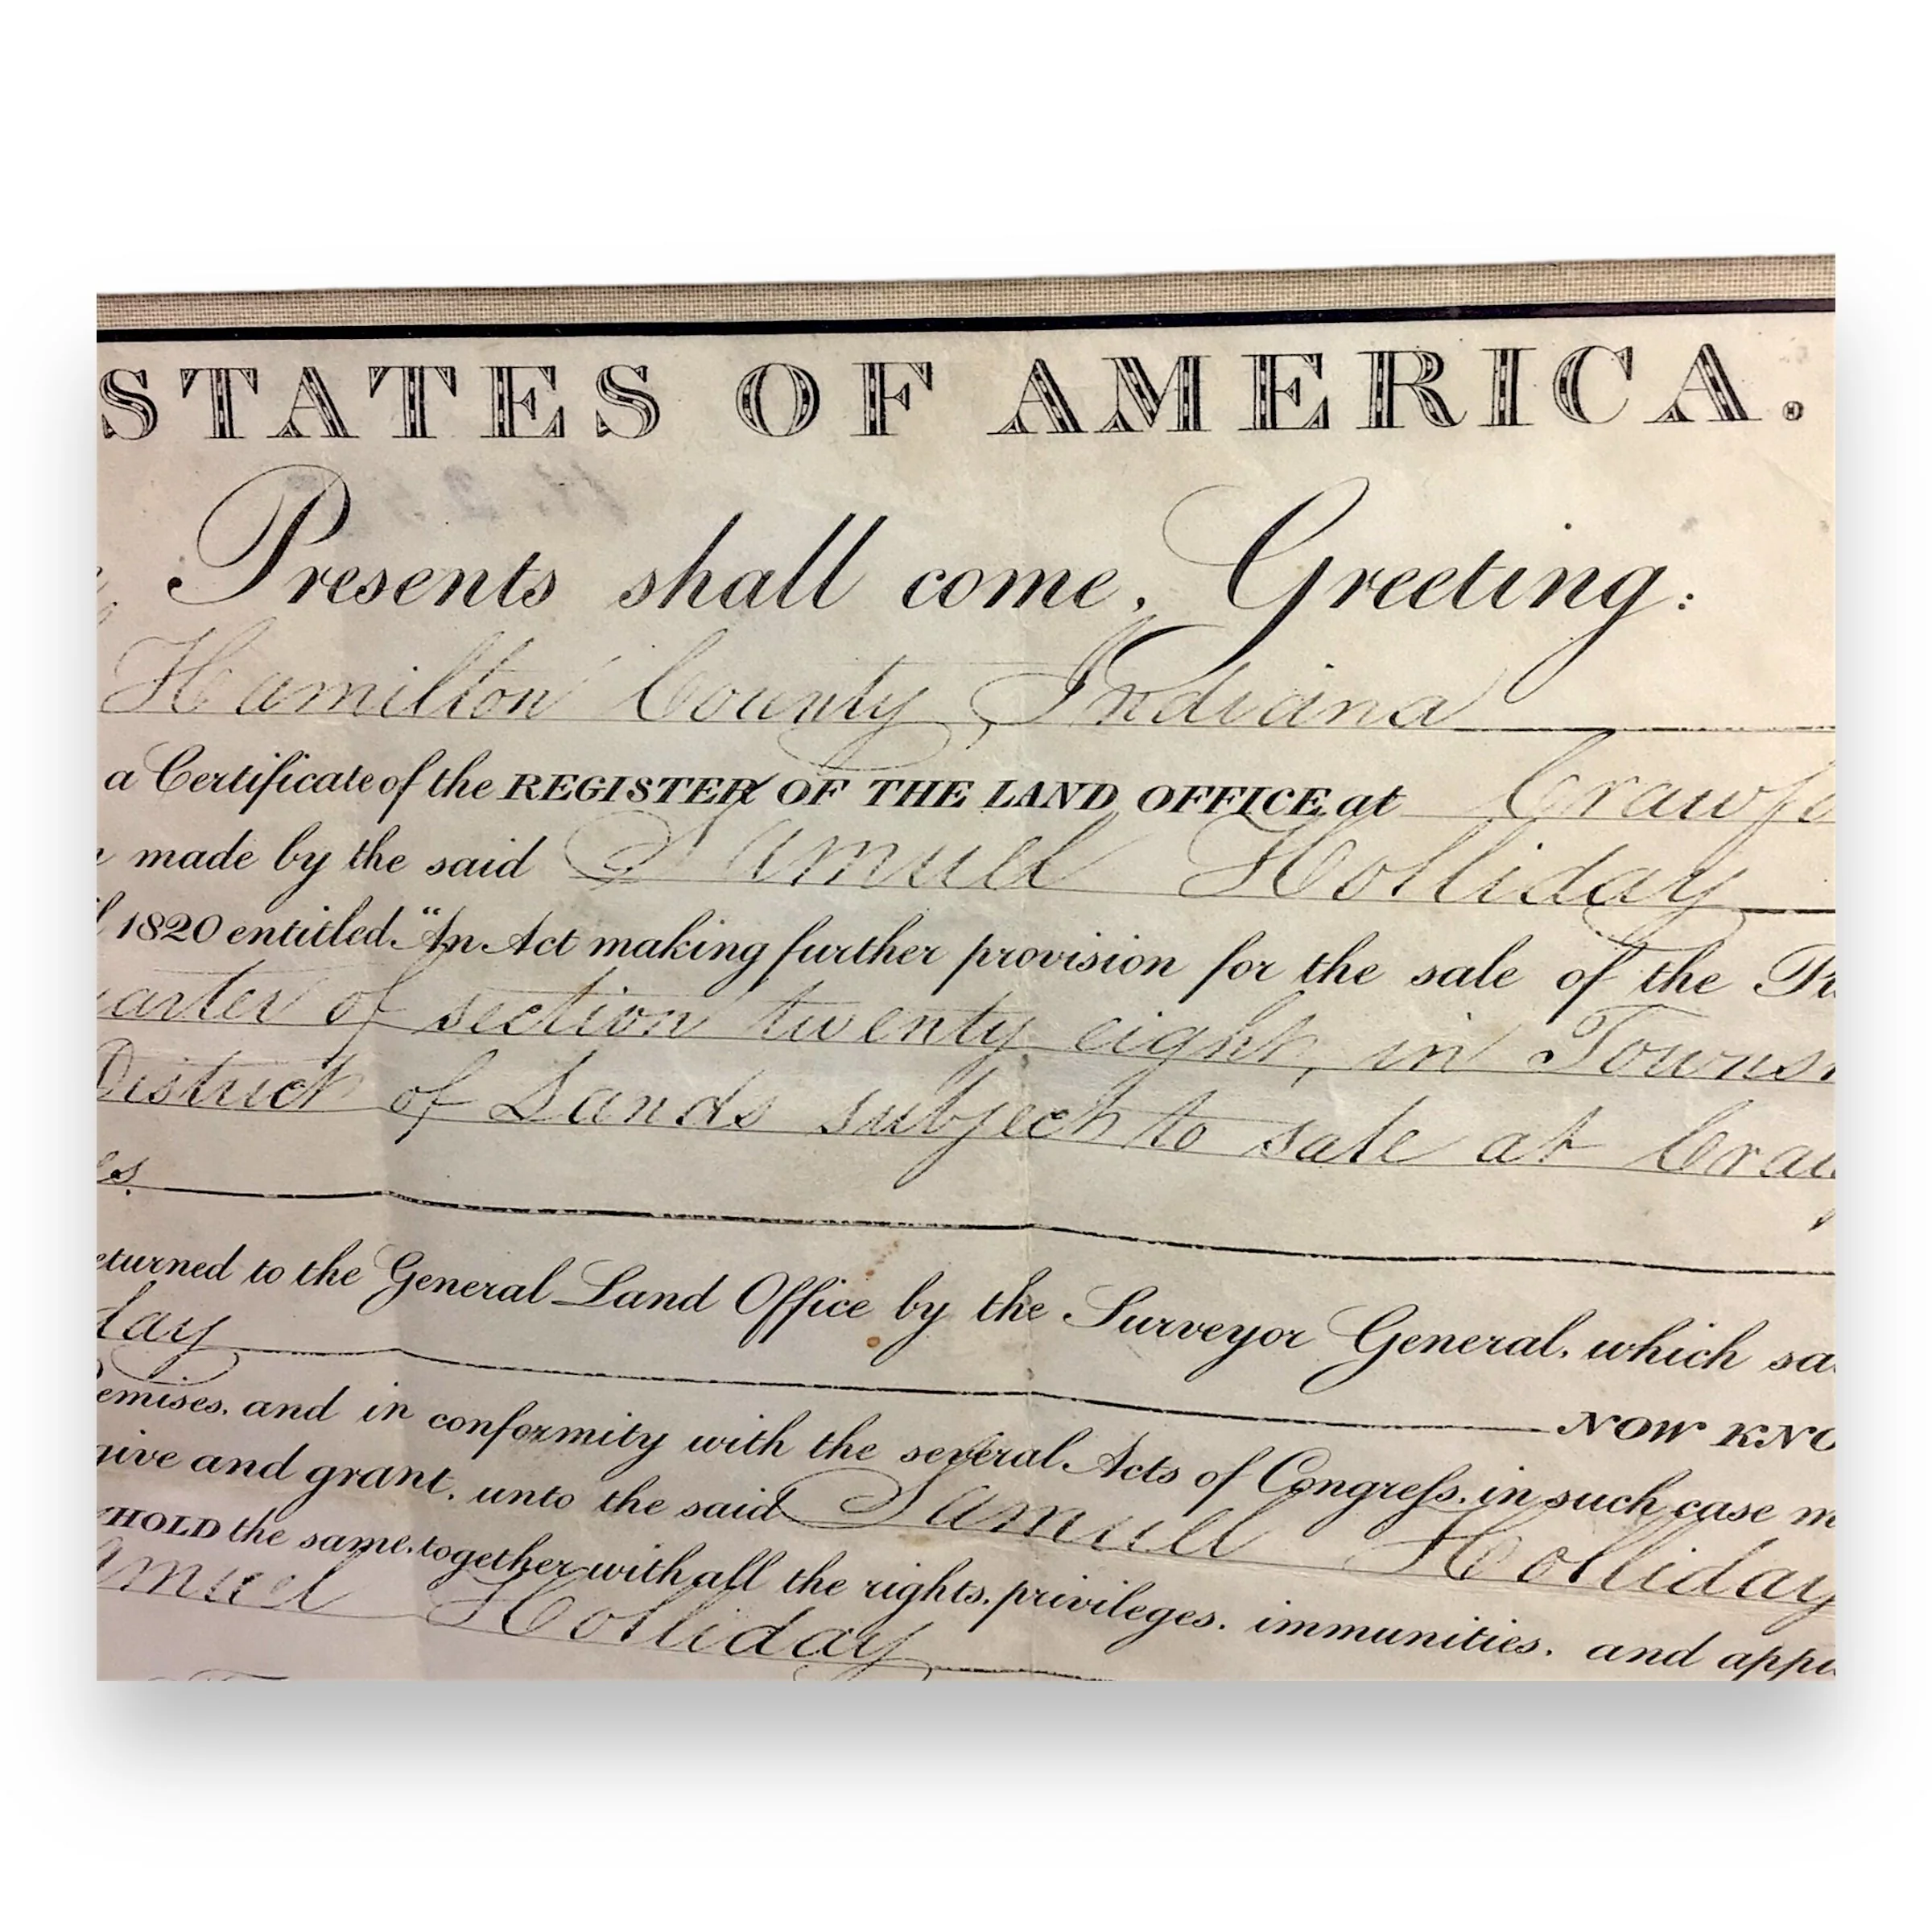 STATES OF AMERICA.
Presents shall come, Greeting:
Hamilton County, Indiana
a Certificate of the REGISTER OF THE LAND OFFICE at Crawfo
made by the said Samuel Holliday
1820 entitled "An Act making further provision for the sale of the Pu
arter of section twenty eight, in Townsh
District of Lands subject to sale at Craw
es.
eturned to the General Land Office by the Surveyor General, which sa
day
NOW KNO
emises, and in conformity with the several Acts of Congress, in such case m
give and grant, unto the said Samuel Holliday
HOLD the same, together with all the rights, privileges, immunities, and appu
amuel Holliday